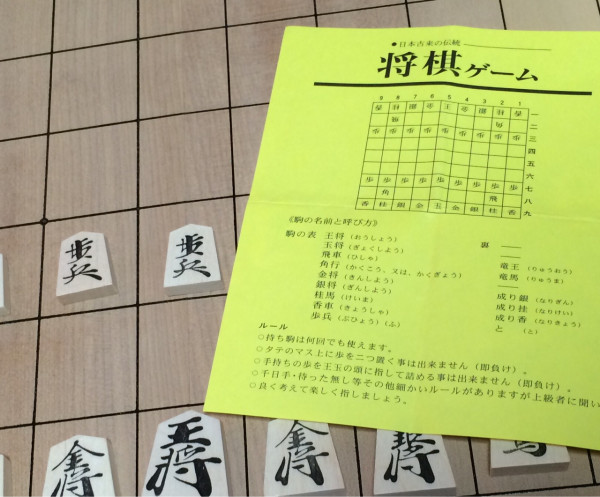 ●日本古来の伝統
将棋ゲーム
9 8 7 6 5 4 3 2 1
一
二
三
四
五
六
七
八
九
歩 歩 歩 歩 歩 歩 歩 歩 歩
角 飛
香 桂 銀 金 玉 金 銀 桂 香
《駒の名前と呼び方》
駒の表 王将（おうしょう） 裏 ――
玉将（ぎょくしよう） ――
飛車（ひしゃ） 竜王（りゅうおう）
角行（かくこう、又は、かくぎょう） 竜馬（りゅうま）
金将（きんしよう） ――
銀将（ぎんしよう） 成り銀（なりぎん）
桂馬（けいま） 成り桂（なりけい）
香車（きょうしゃ） 成り香（なりきょう）
歩兵（ぶひょう）（ふ） と（と）
ルール
○持ち駒は何回でも使えます。
○タテのマス上に歩を二つ置く事は出来ません（即負け）。
○手持ちの歩を王玉の頭に指して詰める事は出来ません（即負け）。
○千日手・待った無し等その他細かいルールがありますが上級者に聞い
○良く考えて楽しく指しましょう。
歩兵
歩兵
金将
王将
金将
銀将